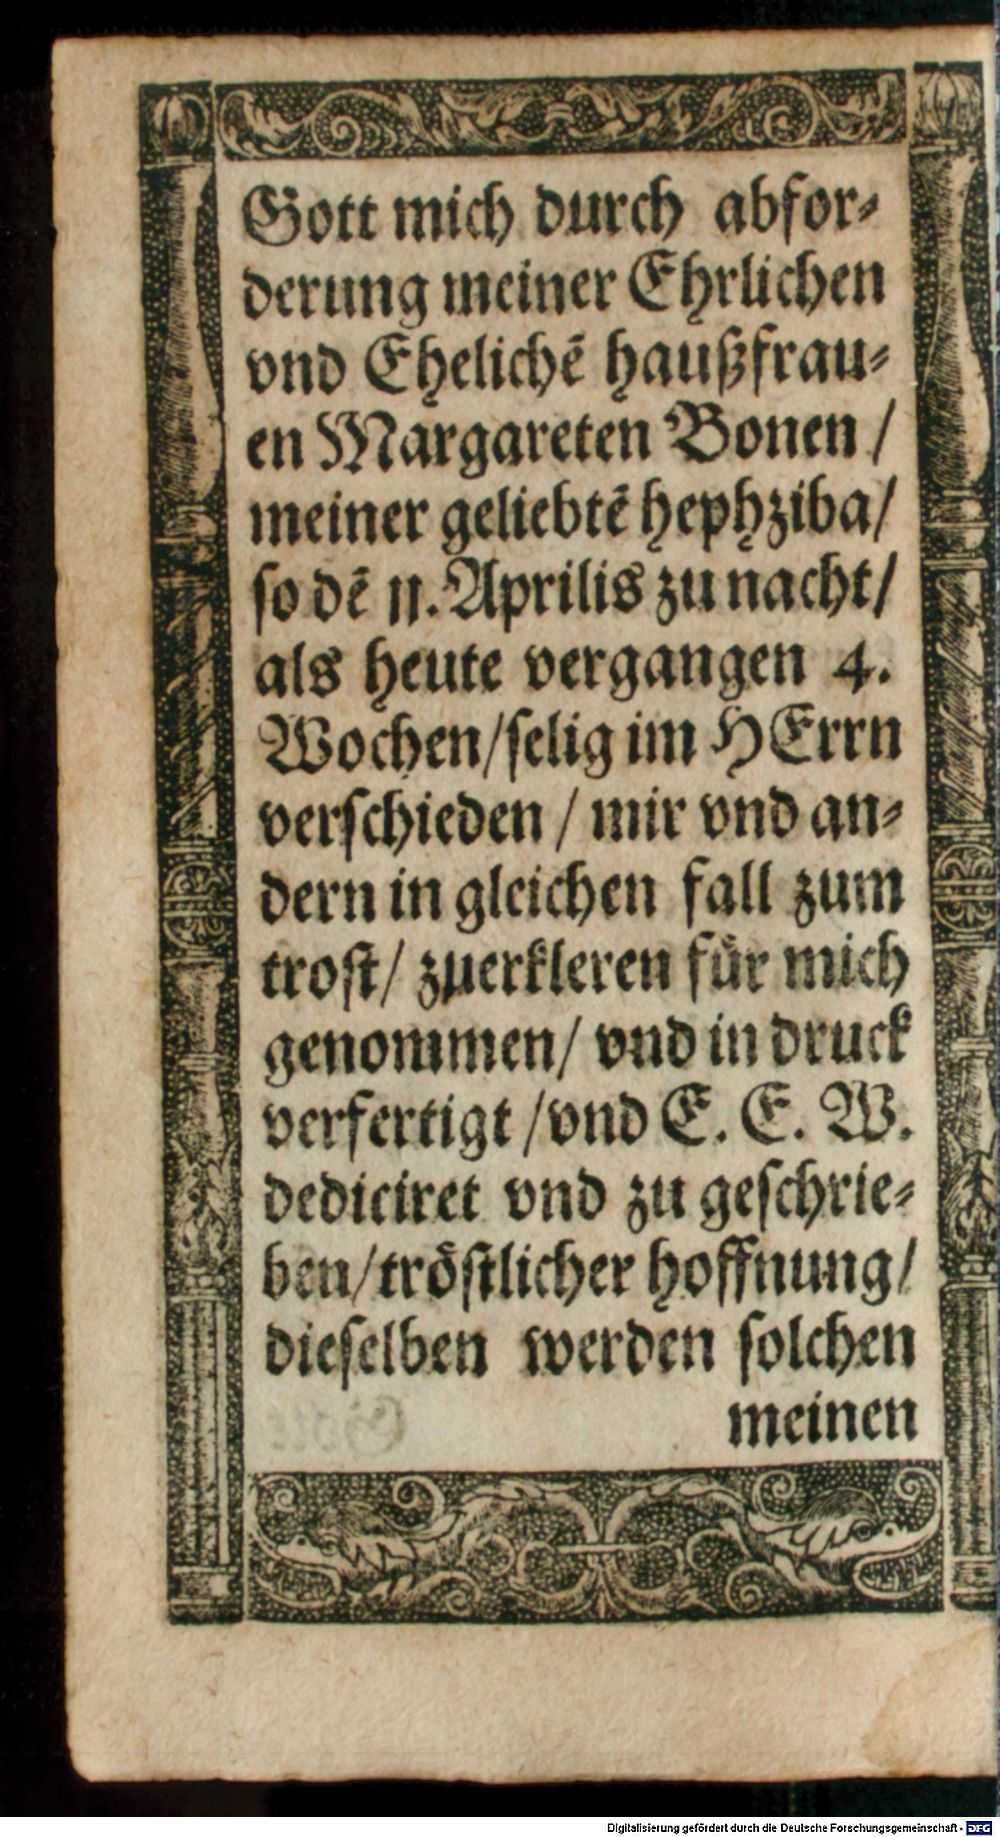 Gott mich durch abfor⸗
derung meiner Ehrlichen
vnd Ehelichē haußfrau⸗
en Margareten Bonen /
meiner geliebtē hephziba/
so dē 11. Aprilis zu nacht/
als heute vergangen 4.
Wochen/selig im HErrn
verschieden / mir vnd an⸗
dern in gleichen fall zum
trost/ zuerkleren für mich
genommen/ vnd in druck
verfertigt /vnd E. E. W.
dediciret vnd zu geschrie⸗
ben/tröstlicher hoffnung/
dieselben werden solchen
meinen
Digitalisierung gefördert durch die Deutsche Forschungsgemeinschaft - DFG